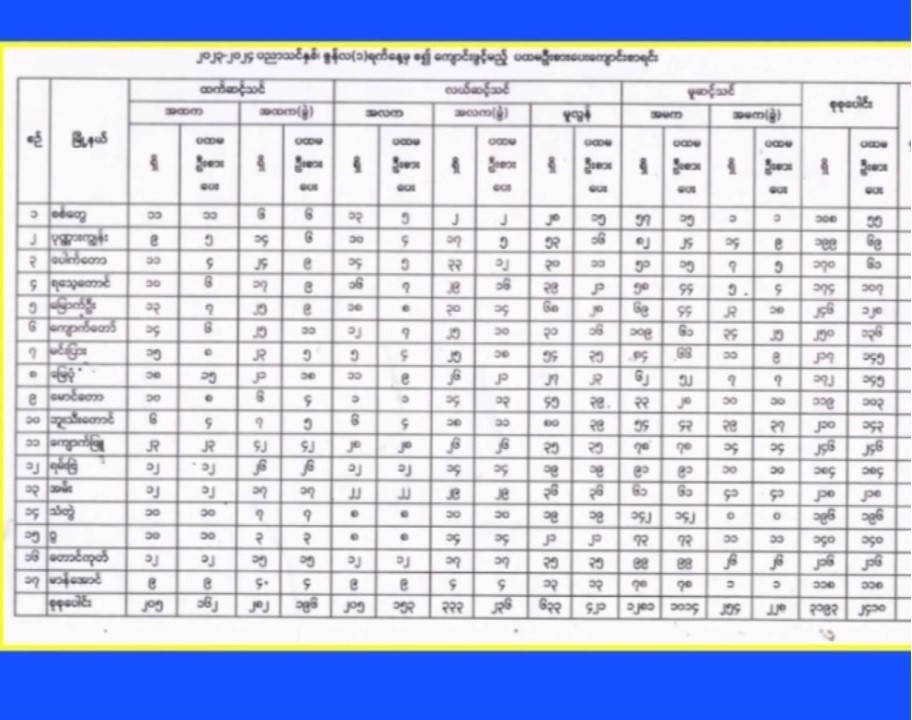 ၂၀၂၃-၂၀၂၄ ပညာသင်နှစ်၊ ဇွန်လ(၁)ရက်နေ့မှ စ၍ ကျောင်းဖွင့်မည့် ပထမဦးစားပေးကျောင်းစာရင်း
စဉ် မြို့နယ် ထက်ဆင့်သင် လယ်ဆင့်သင် မူဆင့်သင် စုစုပေါင်း
အထက အထက(ခွဲ) အလက အလက(ခွဲ) မူလွန် အမက အမက(ခွဲ)
ရှိ ပထမ ဦးစား ပေး ရှိ ပထမ ဦးစား ပေး ရှိ ပထမ ဦးစား ပေး ရှိ ပထမ ဦးစား ပေး ရှိ ပထမ ဦးစား ပေး ရှိ ပထမ ဦးစား ပေး ရှိ ပထမ ဦးစား ပေး ရှိ ပထမ ဦးစား ပေး
၁ စစ်တွေ ၁၁ ၁၁ ၆ ၆ ၁၃ ၅ ၂ ၂ ၂၈ ၁၅ ၅၇ ၁၅ ၁ ၁ ၁၀၈ ၅၅
၂ ပုဏ္ဏားကျွန်း ၉ ၅ ၁၄ ၆ ၁၀ ၄ ၁၇ ၅ ၅၃ ၁၆ ၈၂ ၂၄ ၁၄ ၉ ၁၉၉ ၆၉
၃ ပေါက်တော ၁၁ ၄ ၂၄ ၉ ၁၄ ၅ ၃၃ ၁၂ ၃၀ ၁၁ ၅၁ ၁၅ ၇ ၅ ၁၇၀ ၆၁
၄ ရသေ့တောင် ၁၀ ၆ ၁၇ ၉ ၁၆ ၇ ၂၉ ၁၆ ၃၉ ၂၁ ၅၈ ၄၄ ၅ ၄ ၁၇၄ ၁၀၇
၅ မြောက်ဦး ၁၃ ၇ ၂၅ ၉ ၁၈ ၈ ၃၀ ၁၄ ၆၈ ၂၈ ၆၉ ၄၄ ၂၃ ၁၈ ၂၄၆ ၁၂၈
၆ ကျောက်တော် ၁၄ ၆ ၂၅ ၁၁ ၁၂ ၇ ၂၅ ၁၀ ၃၁ ၁၆ ၁၀၉ ၆၁ ၃၄ ၂၅ ၂၅၀ ၁၃၆
၇ မင်းပြား ၁၅ ၈ ၂၃ ၅ ၅ ၄ ၂၅ ၁၈ ၅၄ ၃၅ ၈၄ ၆၆ ၁၁ ၉ ၂၁၇ ၁၄၅
၈ မြေပုံ ၁၈ ၁၅ ၂၁ ၁၈ ၁၁ ၉ ၂၆ ၂၁ ၂၇ ၂၃ ၆၂ ၅၂ ၇ ၇ ၁၇၂ ၁၄၅
၉ မောင်တော ၁၀ ၈ ၆ ၄ ၁ ၁ ၁၄ ၁၃ ၄၅ ၃၉ ၃၃ ၂၈ ၁၀ ၁၀ ၁၁၉ ၁၀၃
၁၀ ဘူးသီးတောင် ၆ ၄ ၇ ၅ ၆ ၄ ၁၈ ၁၁ ၈၀ ၃၉ ၅၄ ၄၃ ၃၉ ၃၇ ၂၁၀ ၁၄၃
၁၁ ကျောက်ဖြူ ၂၃ ၂၃ ၄၂ ၄၂ ၂၈ ၂၈ ၂၆ ၂၆ ၃၅ ၃၅ ၇၈ ၇၈ ၁၄ ၁၄ ၂၄၆ ၂၄၆
၁၂ ရမ်းဗြဲ ၁၂ ၁၂ ၂၆ ၂၆ ၁၂ ၁၂ ၁၄ ၁၄ ၁၉ ၁၉ ၉၁ ၉၁ ၁၀ ၁၀ ၁၈၄ ၁၈၄
၁၃ အမ်း ၁၂ ၁၂ ၁၇ ၁၇ ၂၂ ၂၂ ၂၉ ၂၉ ၃၆ ၃၆ ၆၁ ၆၁ ၄၁ ၄၁ ၂၁၈ ၂၁၈
၁၄ သံတွဲ ၁၀ ၁၀ ၇ ၇ ၈ ၈ ၁၀ ၁၀ ၁၉ ၁၉ ၁၄၂ ၁၄၂ ၀ ၀ ၁၉၆ ၁၉၆
၁၅ ဂွ ၁၀ ၁၀ ၃ ၃ ၈ ၈ ၁၄ ၁၄ ၂၁ ၂၁ ၇၃ ၇၃ ၁၁ ၁၁ ၁၄၀ ၁၄၀
၁၆ တောင်ကုတ် ၁၂ ၁၂ ၁၅ ၁၅ ၁၂ ၁၂ ၁၇ ၁၇ ၃၅ ၃၅ ၉၉ ၉၉ ၂၆ ၂၆ ၂၁၆ ၂၁၆
၁၇ မာန်အောင် ၉ ၉ ၄ ၄ ၉ ၉ ၄ ၄ ၁၃ ၁၃ ၇၈ ၇၈ ၁ ၁ ၁၁၈ ၁၁၈
စုစုပေါင်း ၂၀၅ ၁၆၂ ၂၈၂ ၁၉၆ ၂၀၅ ၁၅၃ ၃၃၃ ၂၃၆ ၆၃၃ ၄၂၁ ၁၂၈၁ ၁၀၁၄ ၂၅၄ ၂၂၈ ၃၁၉၃ ၂၄၁၀